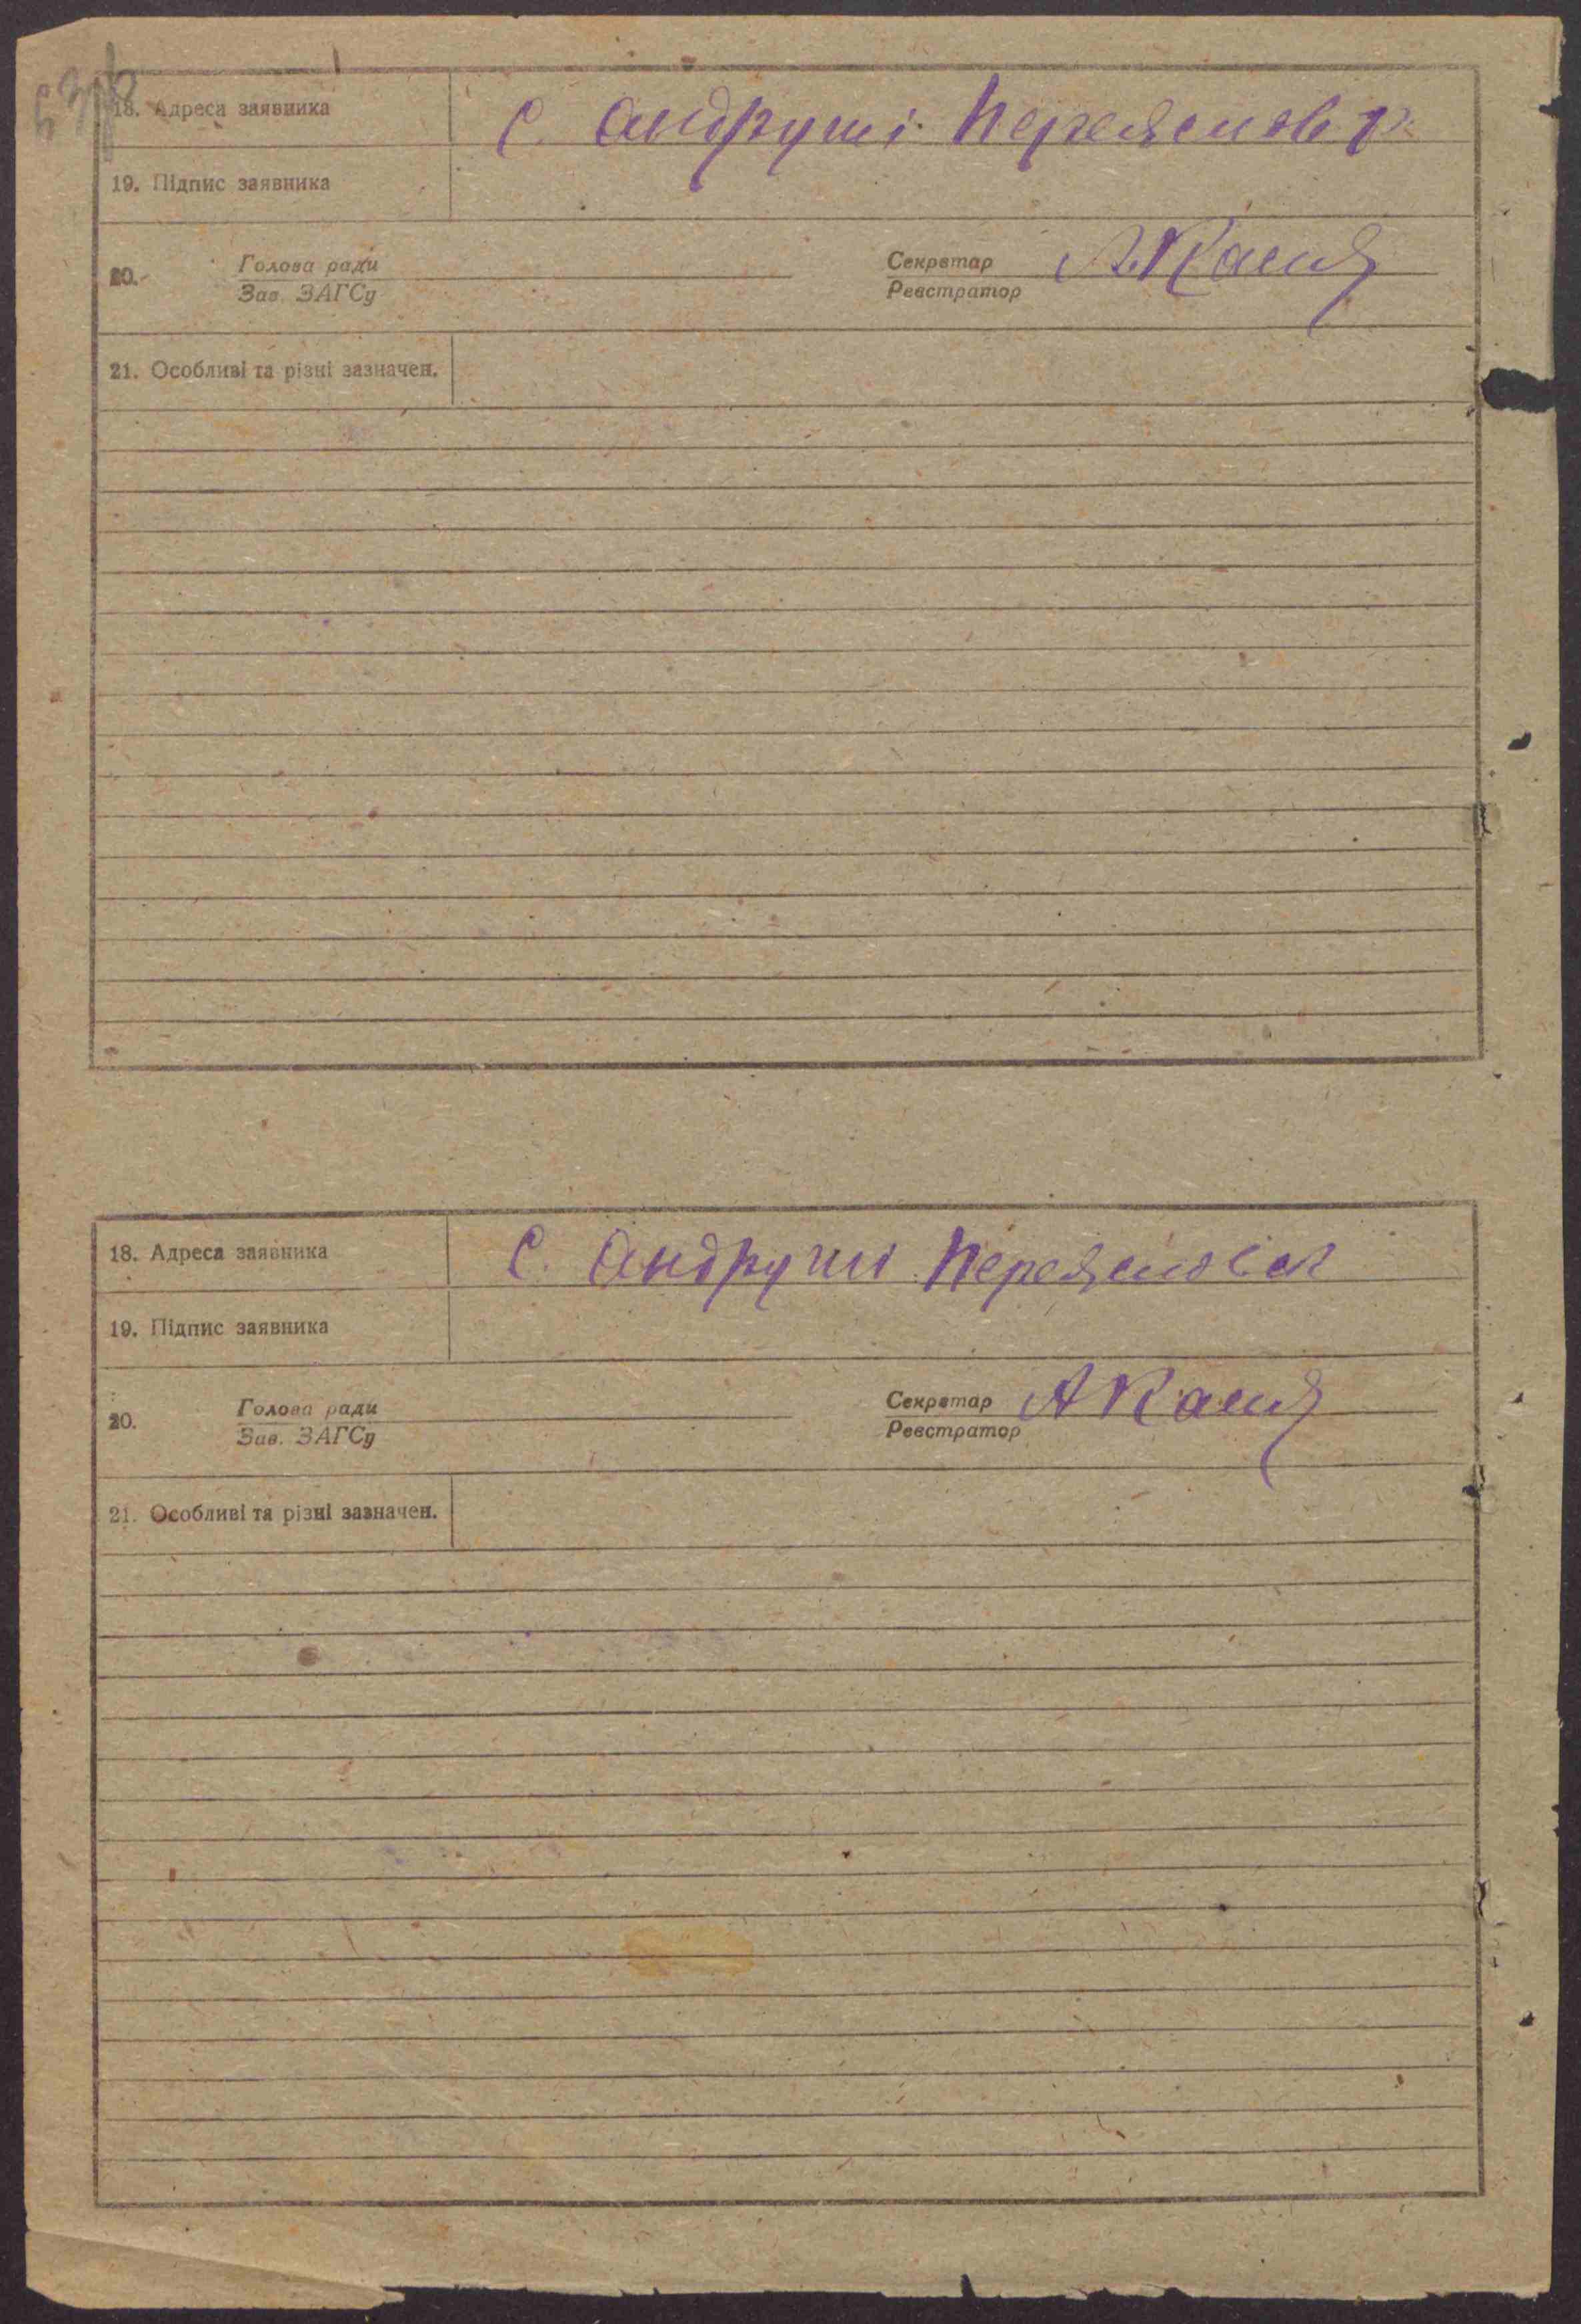 18. Адреса заявника с. Андруші Переяслов р.
19. Підпис заявника
20. Голова ради Секретар
Зав. ЗАГСу Реєстратор
21. Особливі та різні зазначен.
18. Адреса заявника с. Андруші
19. Підпис заявника
20. Голова ради Секретар
Зав. ЗАГСу Реєстратор
21. Особливі та різні зазначен.